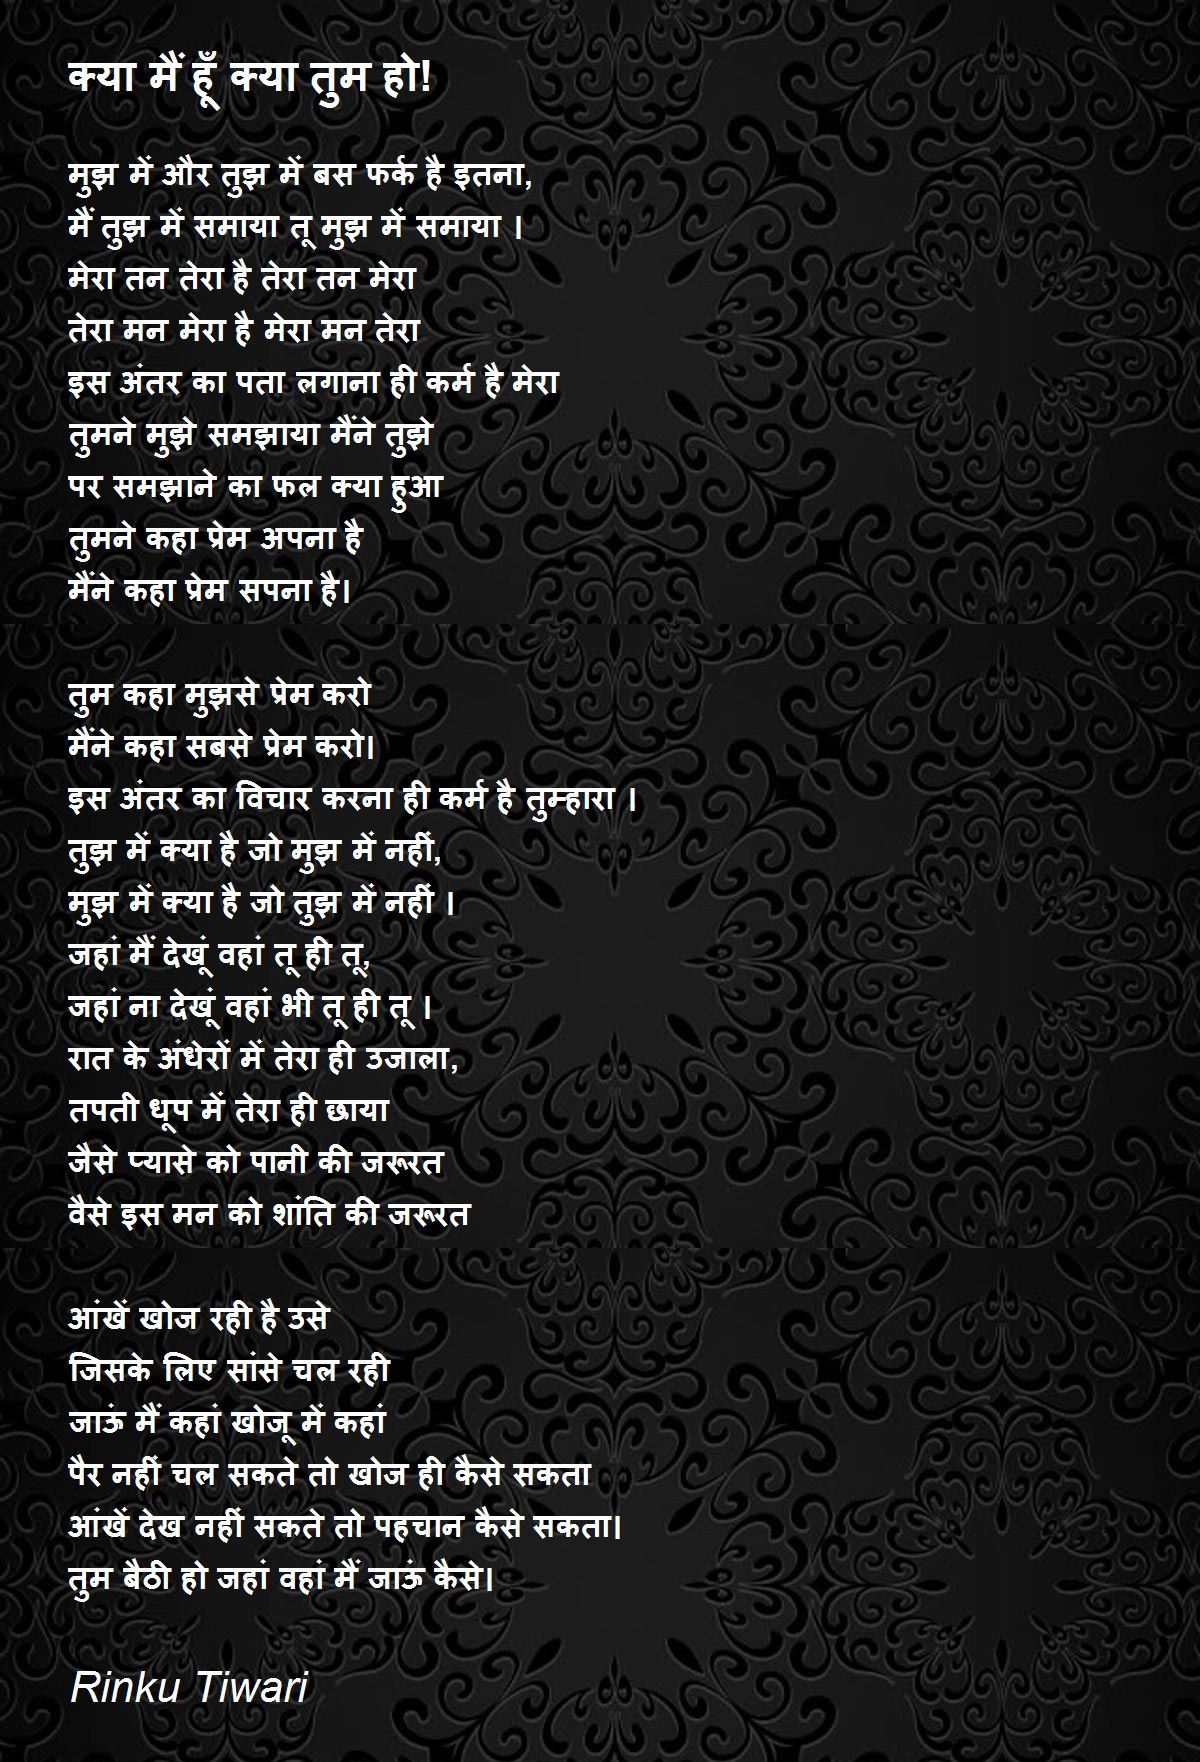 क्या मैं हूँ क्या तुम हो!
मुझ में और तुझ में बस फर्क है इतना,
मैं तुझ में समाया तू मुझ में समाया ।
मेरा तन तेरा है तेरा तन मेरा
तेरा मन मेरा है मेरा मन तेरा
इस अंतर का पता लगाना ही कर्म है मेरा
तुमने मुझे समझाया मैंने तुझे
पर समझाने का फल क्या हुआ
तुमने कहा प्रेम अपना है
मैंने कहा प्रेम सपना है।
तुम कहा मुझसे प्रेम करो
मैंने कहा सबसे प्रेम करो।
इस अंतर का विचार करना ही कर्म है तुम्हारा ।
तुझ में क्या है जो मुझ में नहीं,
मुझ में क्या है जो तुझ में नहीं ।
जहां मैं देखूं वहां तू ही तू,
जहां ना देखूं वहां भी तू ही तू ।
रात के अंधेरों में तेरा ही उजाला,
तपती धूप में तेरा ही छाया
जैसे प्यासे को पानी की जरूरत
वैसे इस मन को शांति की जरूरत
आंखें खोज रही है उसे
जिसके लिए सांसे चल रही
जाऊं मैं कहां खोजू में कहां
पैर नहीं चल सकते तो खोज ही कैसे सकता
आंखें देख नहीं सकते तो पहचान कैसे सकता।
तुम बैठी हो जहां वहां मैं जाऊं कैसे।
Rinku Tiwari